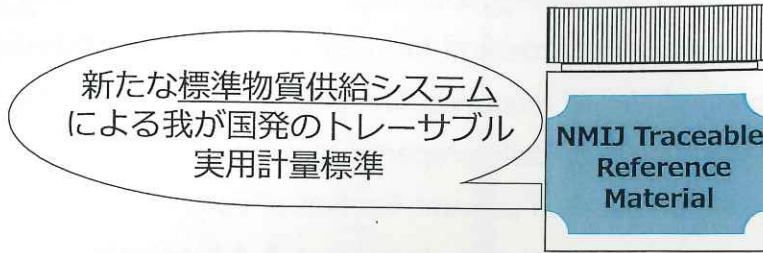 新たな標準物質供給システム
による我が国発のトレーサブル
実用計量標準
NMIJ Traceable
Reference
Material